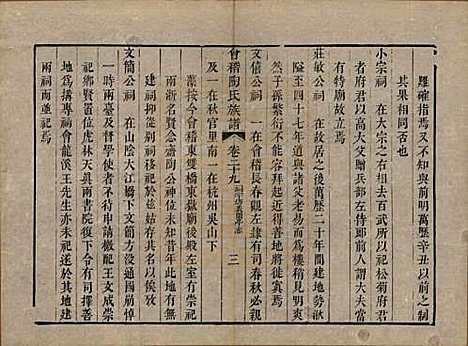 羅確指爲又不知與前明萬歷辛丑以前之制
其果相同否也
小宗祠 在大宗之右相去百武所以祀松菊府君
者府君以高大父贈兵部左侍郎前人謂大夫當
有特廟故立焉
莊敏公祠 在故居之後萬歷二十年間建地勢湫
隘至四十七年道與諸父老易而爲樓稍見明爽
然子孫繁衍不能容拜起近得善地將徙寘焉
文僖公祠 一在會稽長春觀左使有司春秋必親
會稽陶氏族譜 卷二十九 三
及一在秋官里南一在杭州吳山下
蘂按今會稽東雙橋東嶽殿後殿左室有崇祀
兩浙名賢會齋陶公神位未知始於何時或未
建祠抑從到祠移祀於此姑誌其地以俟攷
文簡公祠 在山陰大江橋下文簡方沒通國崩悼
一時兩臺及督學使者不待申請撤配王文成崇
祀鄉賢置位虎林天眞兩書院復下令有司擇善
地爲搆專祠會龍溪王先生亦未祀遂於其地建
兩祠南並祀焉